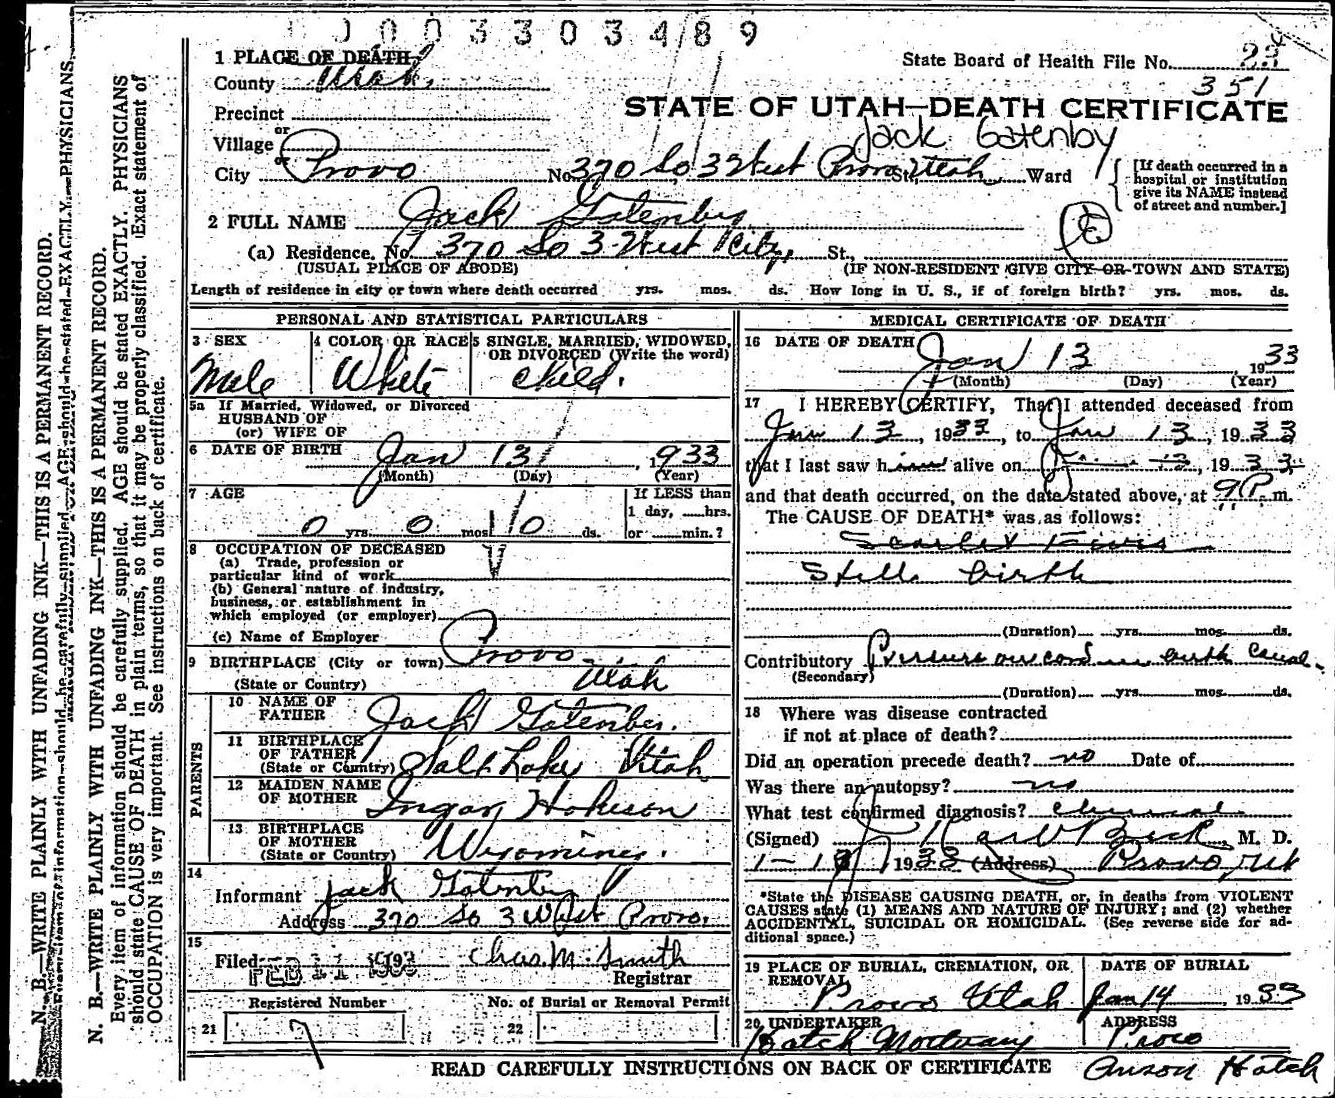 0 0 3 3 0 3 4 8 9
1 PLACE OF DEATH
County Utah.
State Board of Health File No. 22
351
STATE OF UTAH—DEATH CERTIFICATE
Precinct
or
Village
Jack Gatenby
or
City Provo No. 370 So 3 West Provo St., Utah Ward
[If death occurred in a hospital or institution give its NAME instead of street and number.]
2 FULL NAME Jack Gatenby
(a) Residence. No. 370 So 3 West City, St.,
(USUAL PLACE OF ABODE) (IF NON-RESIDENT GIVE CITY OR TOWN AND STATE)
Length of residence in city or town where death occurred yrs. mos. ds. How long in U. S., if of foreign birth? yrs. mos. ds.
PERSONAL AND STATISTICAL PARTICULARS
3 SEX
Male
4 COLOR OR RACE
White
5 SINGLE, MARRIED, WIDOWED, OR DIVORCED (Write the word)
Child.
5a If Married, Widowed, or Divorced
HUSBAND OF
(or) WIFE OF
6 DATE OF BIRTH Jan 13, 1933
(Month) (Day) (Year)
7 AGE
0 yrs. 0 mos. 0 ds.
If LESS than
1 day, ......hrs.
or ......min.?
8 OCCUPATION OF DECEASED
(a) Trade, profession or
particular kind of work
(b) General nature of industry,
business, or establishment in
which employed (or employer)
(c) Name of Employer
9 BIRTHPLACE (City or town) Provo
(State or Country) Utah
PARENTS
10 NAME OF FATHER Jack Gatenby.
11 BIRTHPLACE OF FATHER (State or Country) Salt Lake Utah
12 MAIDEN NAME OF MOTHER Ingar Hokeson
13 BIRTHPLACE OF MOTHER (State or Country) Wyoming.
14
Informant Jack Gatenby
Address 370 So 3 West Provo.
15
Filed FEB 11 1933 Chas. M. Smith
Registrar
Registered Number
21 7
No. of Burial or Removal Permit
22
MEDICAL CERTIFICATE OF DEATH
16 DATE OF DEATH Jan 13, 1933
(Month) (Day) (Year)
17 I HEREBY CERTIFY, That I attended deceased from
Jan 13, 1933, to Jan 13, 1933
that I last saw him alive on 13, 1933
and that death occurred, on the date stated above, at 9 P. m.
The CAUSE OF DEATH* was as follows:
Still birth
(Duration) yrs. mos. ds.
Contributory Pressure on cord in birth Canal
(Secondary)
(Duration) yrs. mos. ds.
18 Where was disease contracted
if not at place of death?
Did an operation precede death? no Date of
Was there an autopsy? no
What test confirmed diagnosis? clinical
(Signed) M. D.
1-13, 1933 (Address) Provo, Utah
*State the DISEASE CAUSING DEATH, or, in deaths from VIOLENT
CAUSES state (1) MEANS AND NATURE OF INJURY; and (2) whether
ACCIDENTAL, SUICIDAL OR HOMICIDAL. (See reverse side for ad-
ditional space.)
19 PLACE OF BURIAL, CREMATION, OR REMOVAL
Provo Utah
DATE OF BURIAL
Jan 14, 1933
20 UNDERTAKER
Hatch Mortuary
ADDRESS
Provo
READ CAREFULLY INSTRUCTIONS ON BACK OF CERTIFICATE
Anson Hatch
N. B.—WRITE PLAINLY WITH UNFADING INK—THIS IS A PERMANENT RECORD.
N. B.—WRITE PLAINLY WITH UNFADING INK—THIS IS A PERMANENT RECORD.
Every item of information should be carefully supplied. AGE should be stated EXACTLY. PHYSICIANS
should state CAUSE OF DEATH in plain terms, so that it may be properly classified. Exact statement of
OCCUPATION is very important. See instructions on back of certificate.